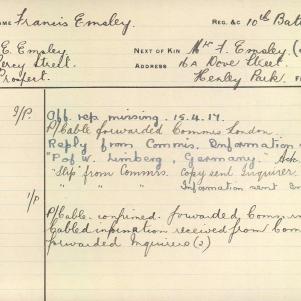 ME Francis Emsley REG. &c 10th Batt
E. Emsley NEXT OF KIN Mr F. Emsley (
ercy Street. ADDRESS 16A Dove Street.
Prospect. Henley Park.
I/P. Off. rep. missing. 15.4.17.
P/Cable forwarded Commrs London.
Reply from Commrs. Information
"P of W. Limberg, Germany." Ack.
"Slip" from Commrs. Copy sent Inquirer.
" " " Information sent En
1/P P/Cable. confirmed. forwarded Commrs
Cabled information received from Com
forwarded Inquirers (2)